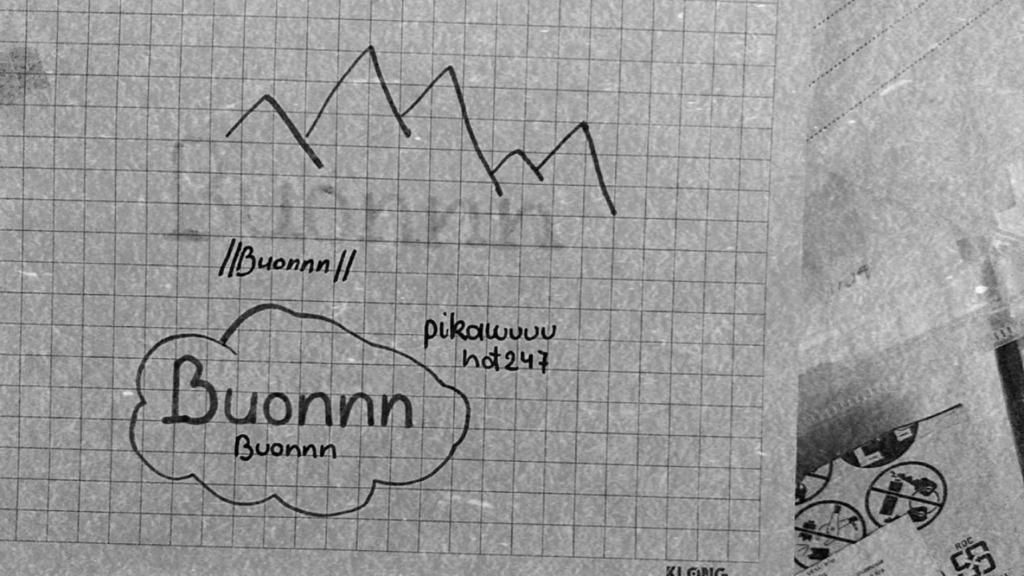 //Buonnn//
pikawuuu
hot247
Buonnn
Buonnn
KLONG
ROC